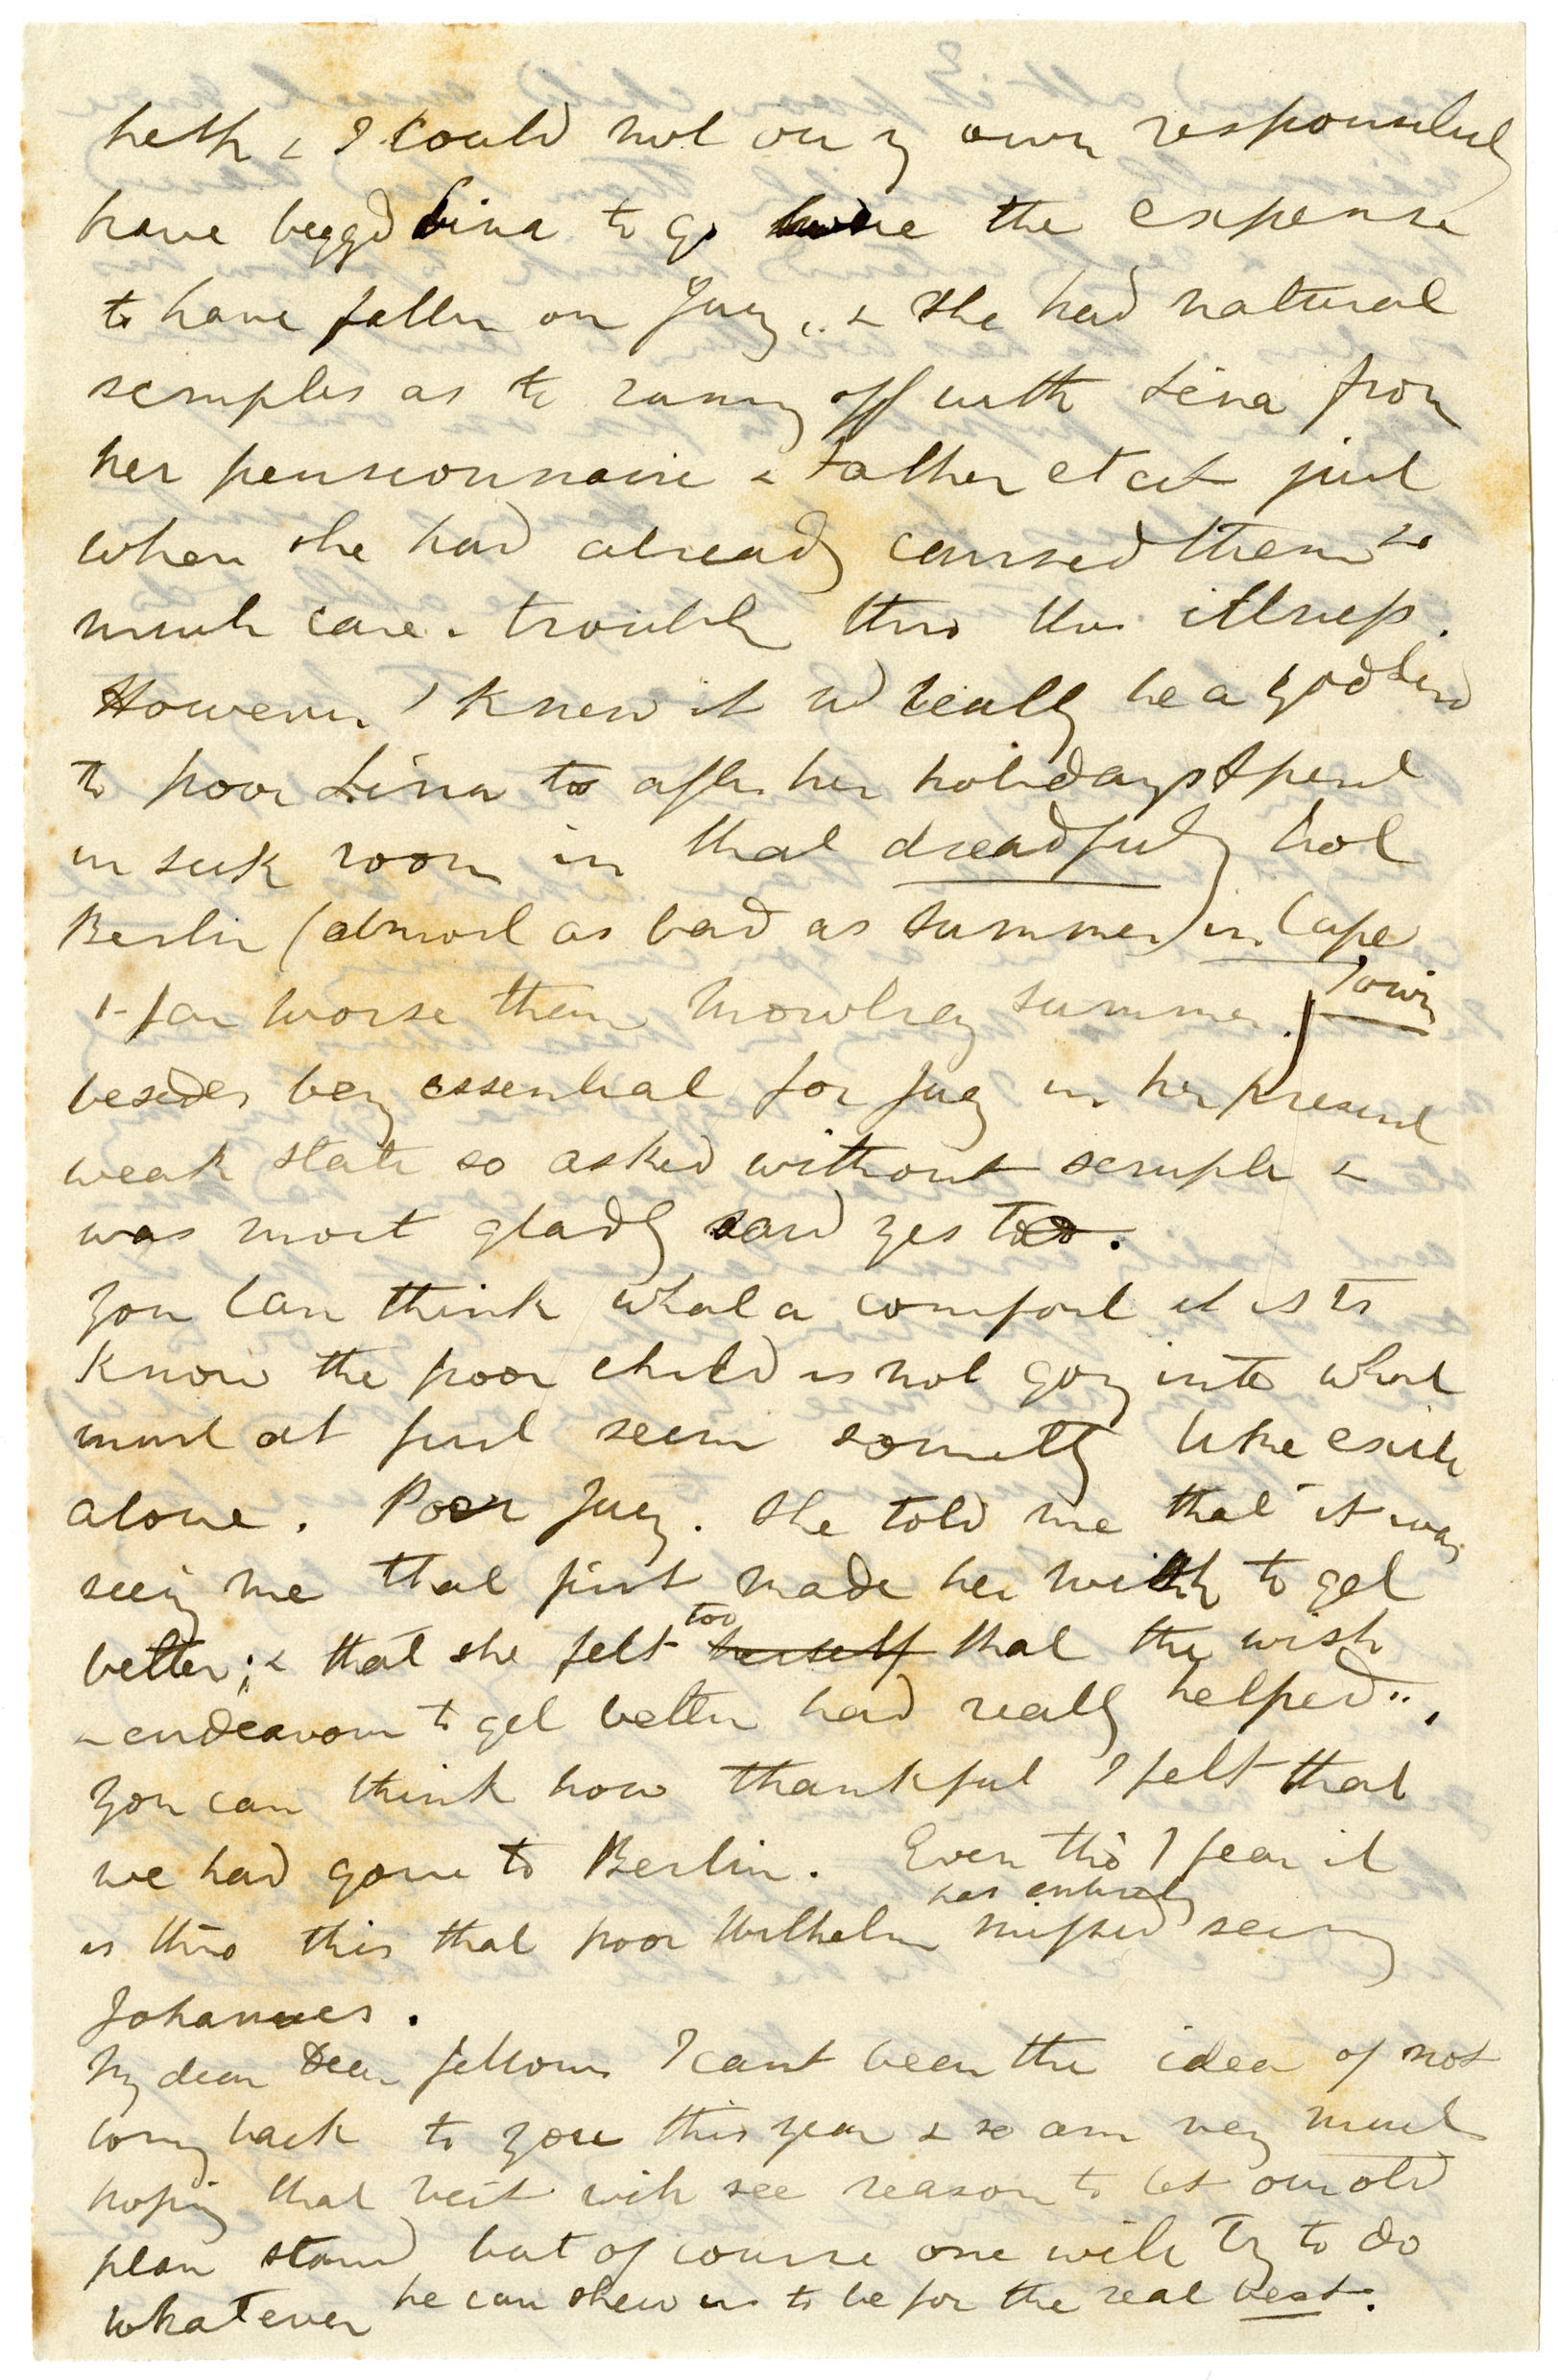 heth & I could not on my own responsibly
have beggd Lina to go here the expense
to have fallen on Jucy, & she had natural
scruples as to runng off with Lina from
her pensionnaire & Father etct just
when she had already caused them so
much care & trouble thro this illness.
However I knew it wd really be a godsend
to poor Lina to after her holidays spent
in sick room in that dreadfully hot
Berlin (almost as bad as summer in Cape Town
& far worse than Mowbray summer.)
besides beg essential for Jucy in her present
weak state so asked without scruple &
was most gladly said yes to.
You can think what a comfort it is to
know the poor child is not gog into what
must at first seem somethg like exile
alone. Poor Jucy. She told me that "it was
seeig me that first made her wish to get
better; & that she felt too herself that the wish
& endeavour to get better had really helped".
You can think how thankful I felt that
we had gone to Berlin. Even tho' I fear it
is thro this that poor Wilhelm has entirely missed seeing
Johannes.
My dear Dear fellow I cant bear the idea of not
comg back to you this year & so am very much
hopig that Veit will see reason to let our old
plan stand but of course one will try to do
whatever he can shew us to be for the real best.